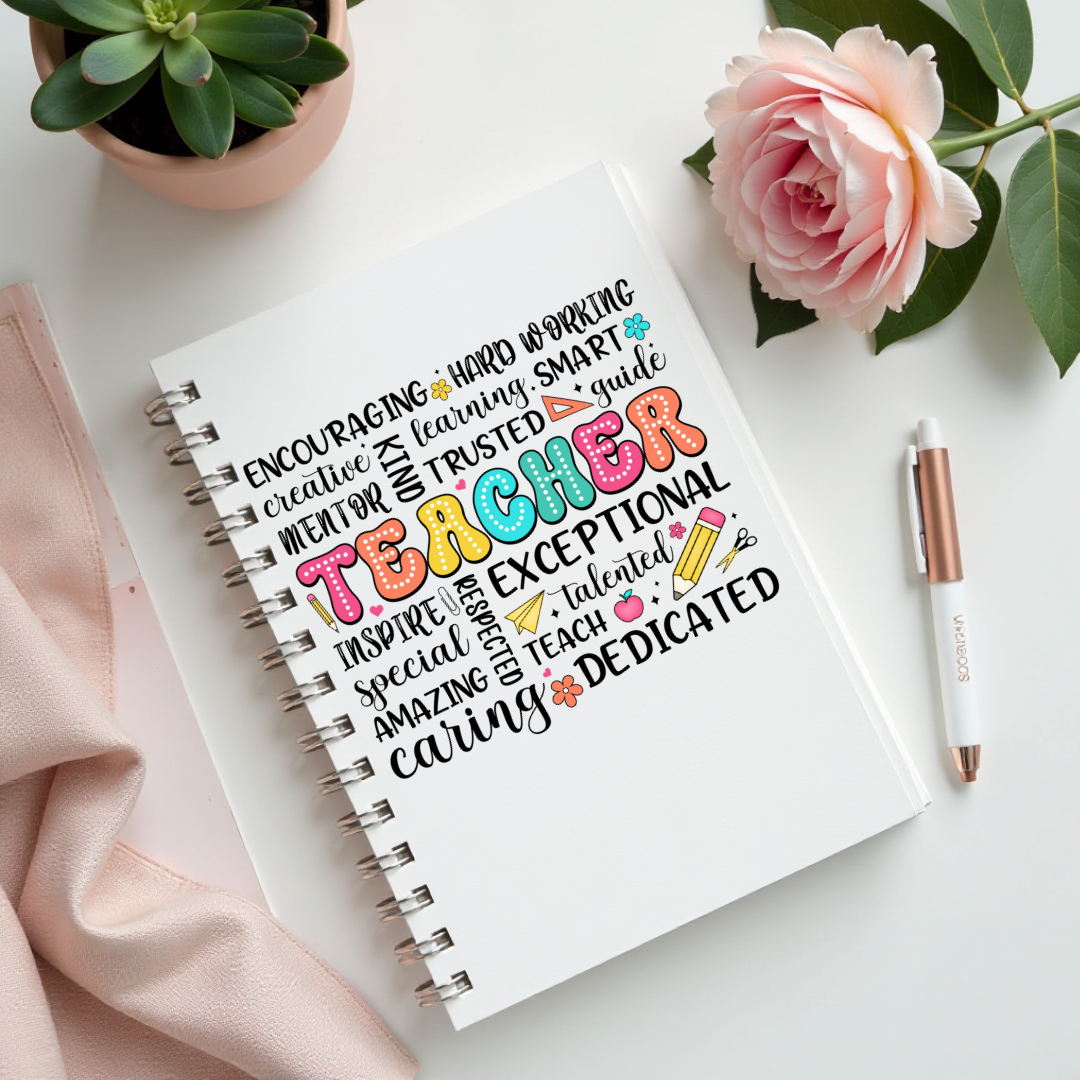 ENCOURAGING HARD WORKING
creative KIND learning SMART
MENTOR TRUSTED guide
TEACHER
INSPIRE RESPECTED EXCEPTIONAL
special talented
AMAZING TEACH
caring DEDICATED